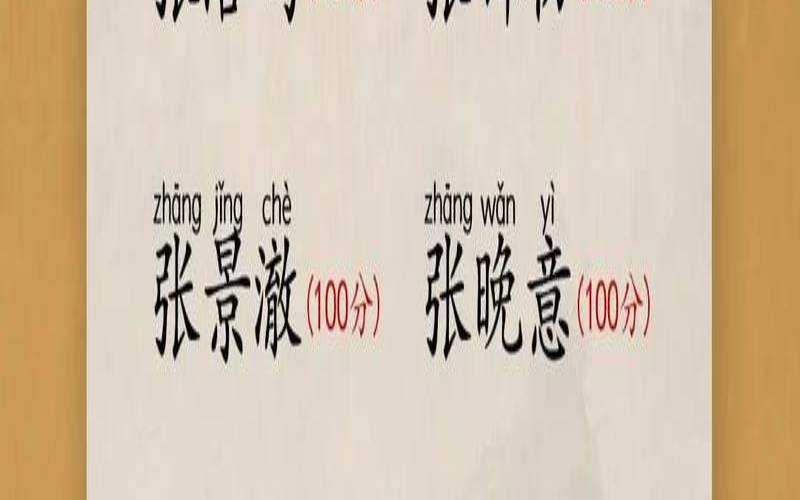 zhāng jǐng chè zhāng wǎn yì
张景澈(100分) 张晚意(100分)